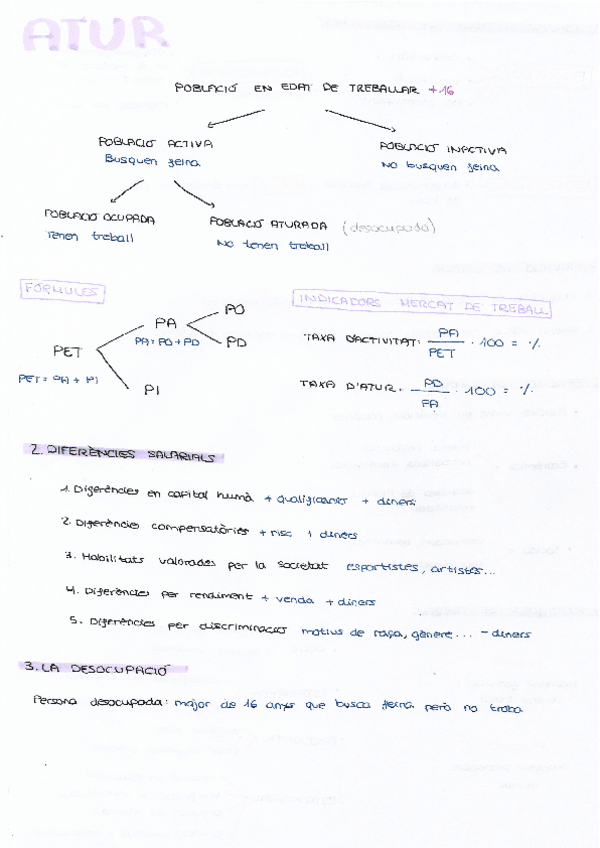 ATUR
POBLACIÓ EN EDAT DE TREBALLAR +16
POBLACIÓ ACTIVA
Busquen feina
POBLACIÓ INACTIVA
No busquen feina
POBLACIÓ OCUPADA
Tenen treball
POBLACIÓ ATURADA (desocupada)
No tenen treball
FÓRMULES
INDICADORS MERCAT DE TREBALL
PET
PET = PA + PI
PA
PA = PO + PD
PO
PD
PI
TAXA D'ACTIVITAT: PA / PET · 100 = %
TAXA D'ATUR: PD / PA · 100 = %
2. DIFERÈNCIES SALARIALS
1. Diferències en capital humà + qualificants + diners
2. Diferències compensatòries + risc + diners
3. Habilitats valorades per la societat esportistes, artistes...
4. Diferències per rendiment + venda + diners
5. Diferències per discriminació motius de raça, gènere... - diners
3. LA DESOCUPACIÓ
Persona desocupada: major de 16 anys que busca feina però no troba